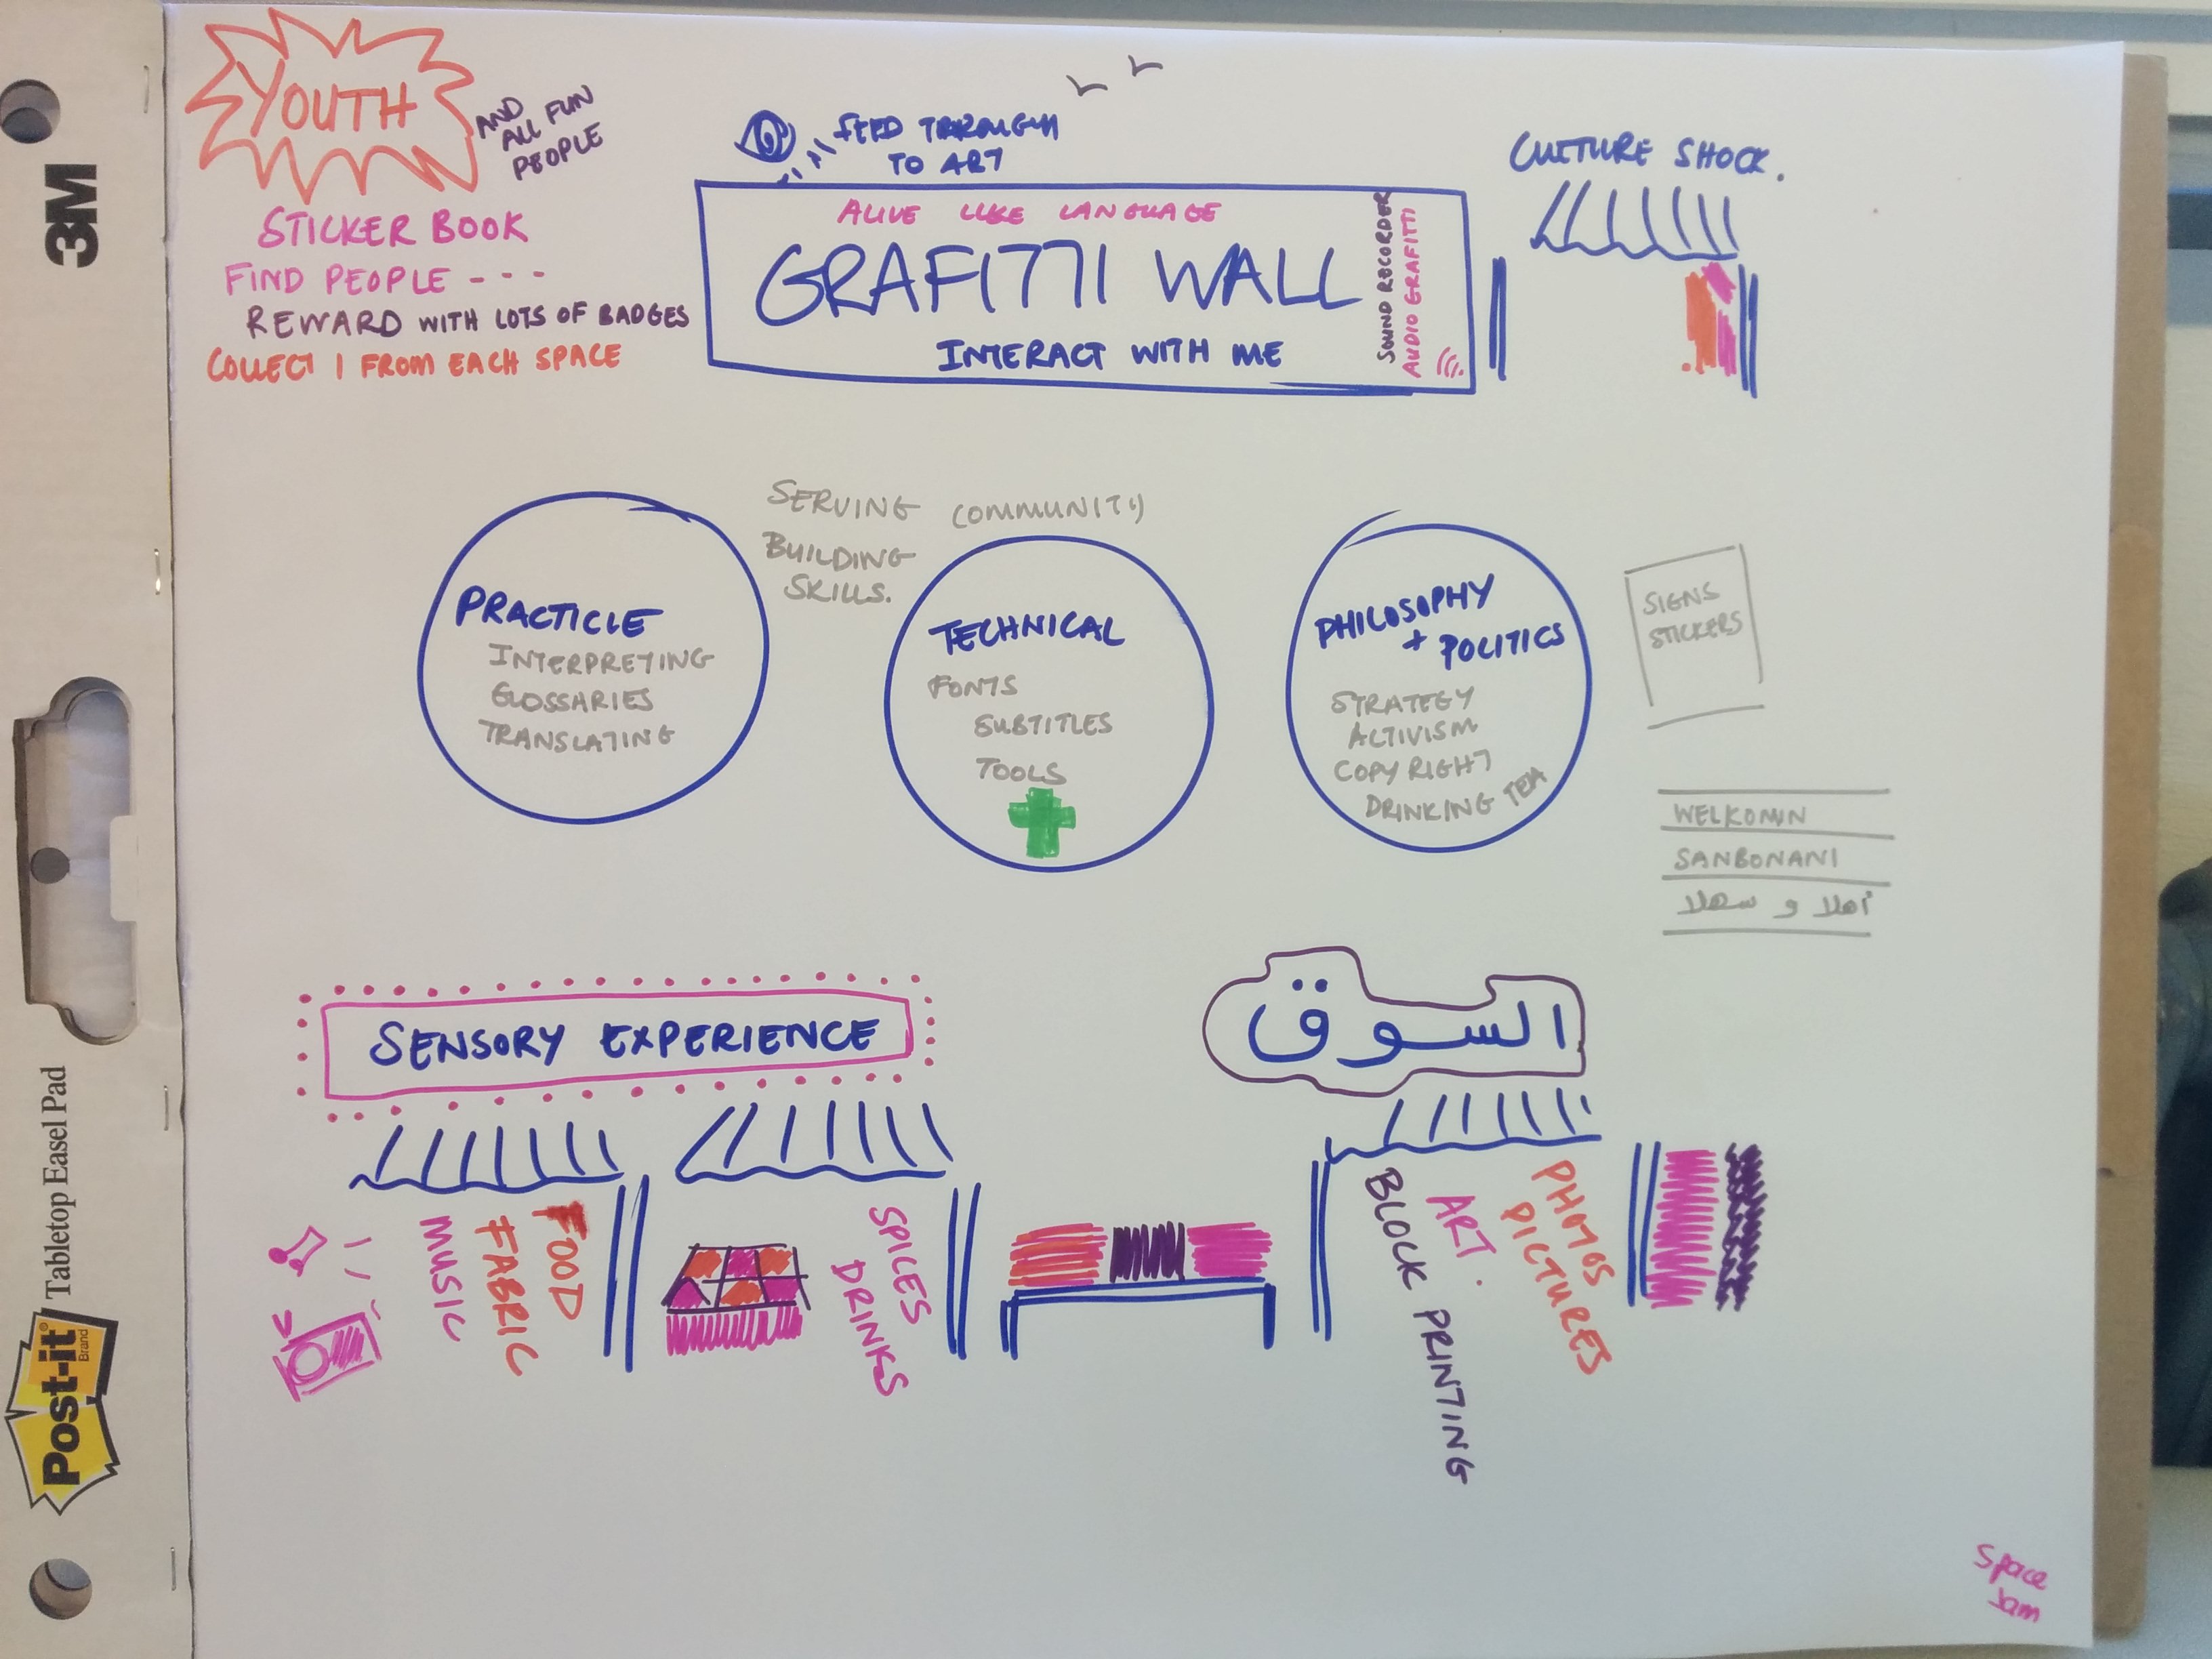 YOUTH
AND
ALL FUN
PEOPLE
STICKER BOOK
FIND PEOPLE - - -
REWARD WITH LOTS OF BADGES
COLLECT 1 FROM EACH SPACE
FEED THROUGH
TO ART
ALIVE LIKE LANGUAGE
GRAFITTI WALL
INTERACT WITH ME
SOUND RECORDER
AUDIO GRAFITTI
CULTURE SHOCK.
SERVING COMMUNITY
BUILDING
SKILLS.
PRACTICLE
INTERPRETING
GLOSSARIES
TRANSLATING
TECHNICAL
FONTS
SUBTITLES
TOOLS
PHILOSOPHY
+ POLITICS
STRATEGY
ACTIVISM
COPYRIGHT
DRINKING TEA
SIGNS
STICKERS
WELKOMN
SANBONANI
أهلا و سهلا
SENSORY EXPERIENCE
السوق
FOOD
FABRIC
MUSIC
SPICES
DRINKS
PHOTOS
PICTURES
ART.
BLOCK PRINTING
Space
Jam
3M
Tabletop Easel Pad
Post-it
Brand